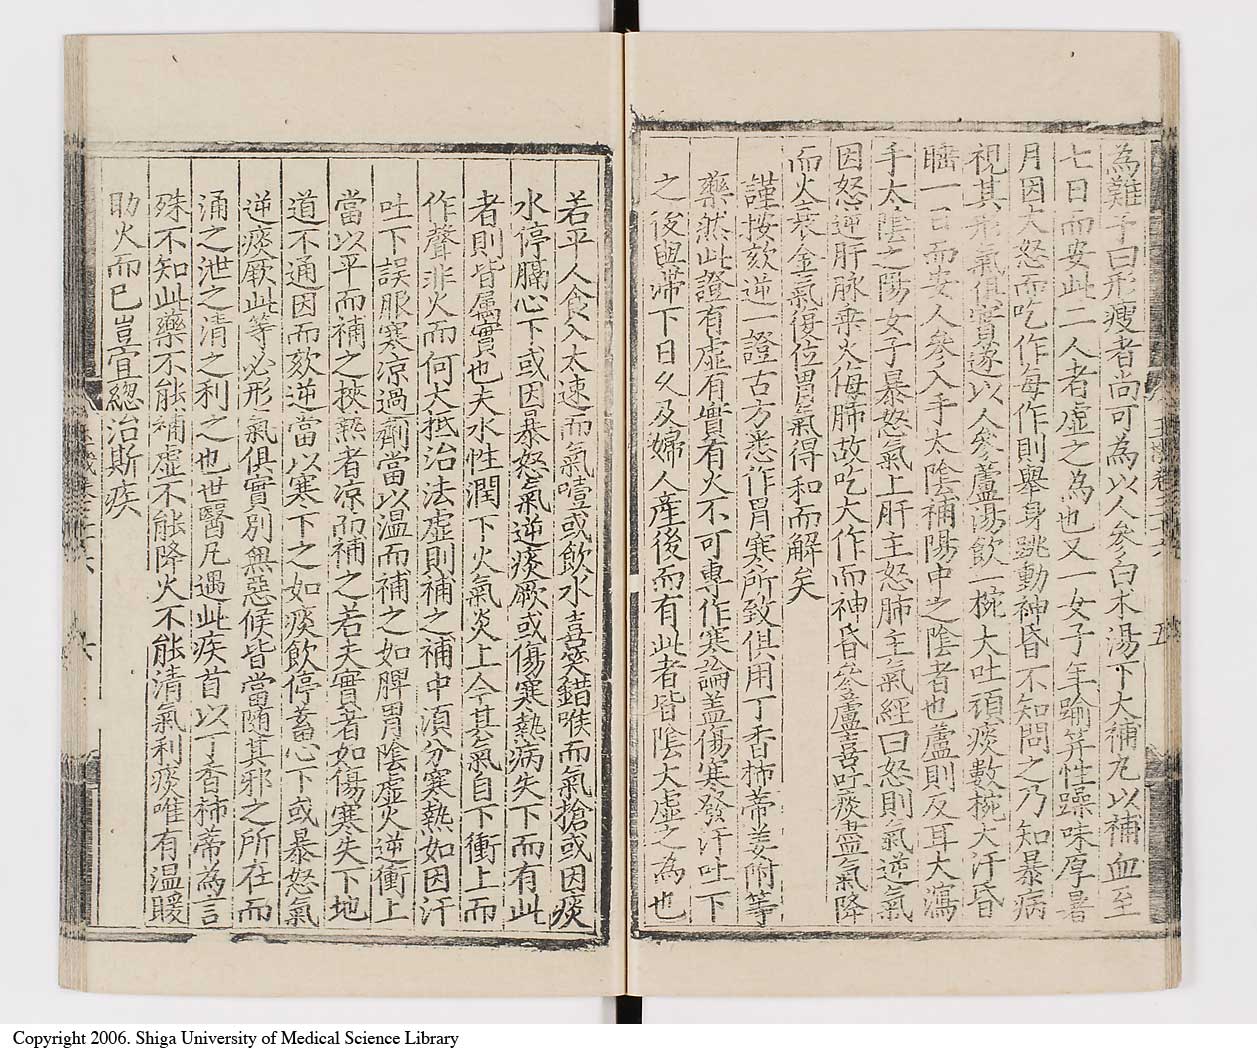 為難予曰形瘦者尚可為以人參白朮湯下大補丸以補血至
七日而安此二人者虛之為也又一女子年踰筓性躁味厚暑
月因大怒而吃作每作則舉身跳動神昏不知問之乃知暴病
視其形氣俱實遂以人參蘆湯飲一椀大吐頑痰數椀大汗昏
睡一日而安人參入手太陰補陽中之陰者也蘆則反耳大瀉
手太陰之陽女子暴怒氣上肝主怒肺主氣經曰怒則氣逆氣
因怒逆肝脉乗火侮肺故吃大作而神昏參蘆喜吐痰盡氣降
而火衰金氣復位胃氣得和而解矣
謹按欬逆一證古方悉作胃寒所致俱用丁香柿蒂姜附等
藥然此證有虛有實有火不可專作寒論盖傷寒發汗吐下
之後與滯下日久及婦人產後而有此者皆隂大虛之為也
若平人食入太速而氣噎或飲水喜笑錯喉而氣搶或因痰
水停膈心下或因暴怒氣逆痰厥或傷寒熱病失下而有此
者則皆属實也夫水性潤下火氣炎上今其氣自下衝上而
作聲非火而何大抵治法虛則補之補中湏分寒熱如因汗
吐下誤服寒涼過劑當以温而補之如脾胃陰虛火逆衝上
當以平而補之挾熱者凉而補之若夫實者如傷寒失下地
道不通因而欬逆當以寒下之如痰飲停蓄心下或暴怒氣
逆痰厥此等必形氣俱實別無惡候皆當随其邪之所在而
涌之泄之清之利之也世醫凡遇此疾首以丁香柿蒂為言
殊不知此藥不能補虛不能降火不能清氣利痰唯有温暖
助火而已豈宜緫治斯疾
Copyright 2006. Shiga University of Medical Science Library